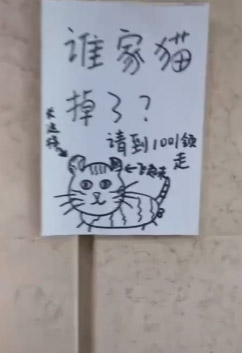 谁家猫
掉了？
请到1001领
走
长这样
飞机耳